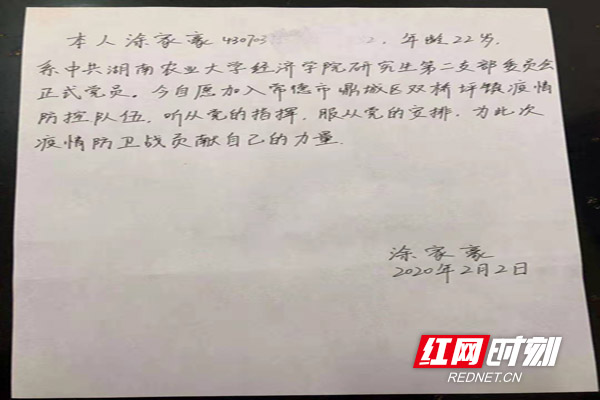 本人涂家豪430703 2，年龄22岁，
系中共湖南农业大学经济学院研究生第二支部委员会
正式党员。今自愿加入常德市鼎城区双桥坪镇疫情
防控队伍，听从党的指挥，服从党的安排，为此次
疫情防卫战贡献自己的力量.
涂家豪
2020年2月2日
红网时刻
REDNET.CN